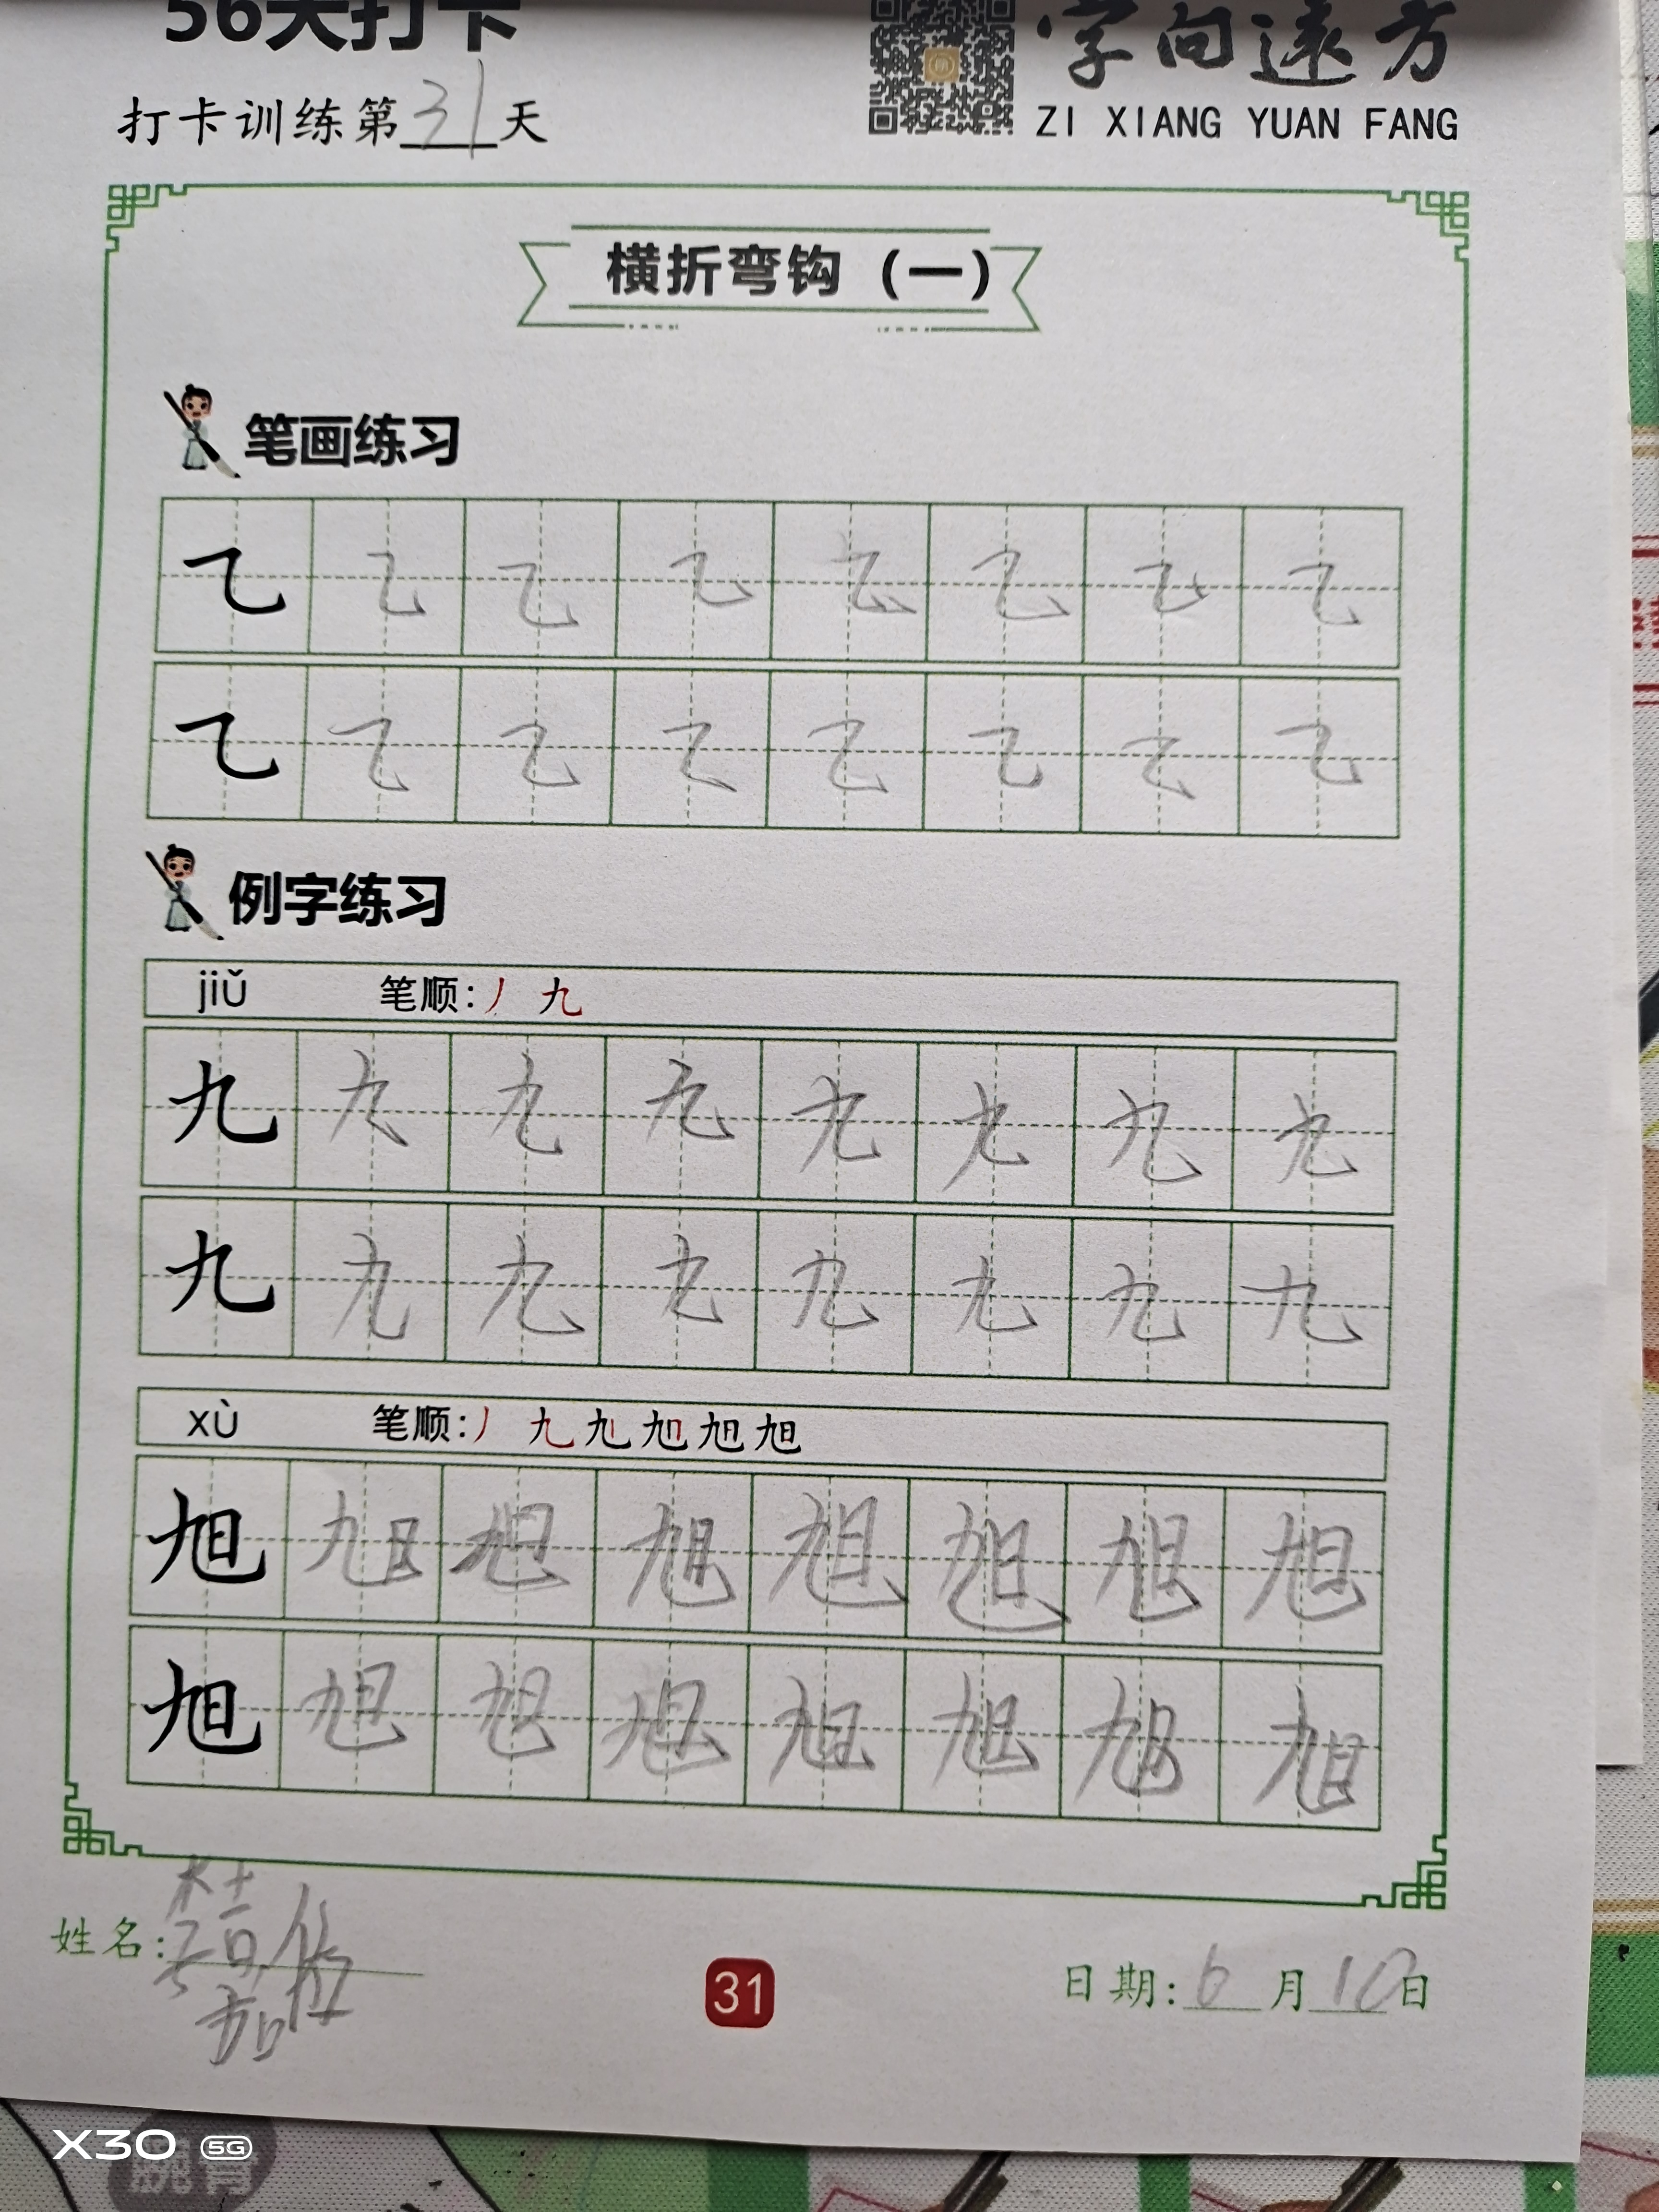 56天打卡
字向远方
打卡训练第31天
ZI XIANG YUAN FANG
横折弯钩（一）
笔画练习
㇈ ㇈ ㇈ ㇈ ㇈ ㇈ ㇈ ㇈
㇈ ㇈ ㇈ ㇈ ㇈ ㇈ ㇈ ㇈
例字练习
jiǔ 笔顺：丿 九
九 九 九 九 九 九 九 九
九 九 九 九 九 九 九 九
xù 笔顺：丿 九 旭 旭 旭 旭
旭 旭 旭 旭 旭 旭 旭 旭
旭 旭 旭 旭 旭 旭 旭 旭
姓名：
31
日期：6月10日
X30 5G